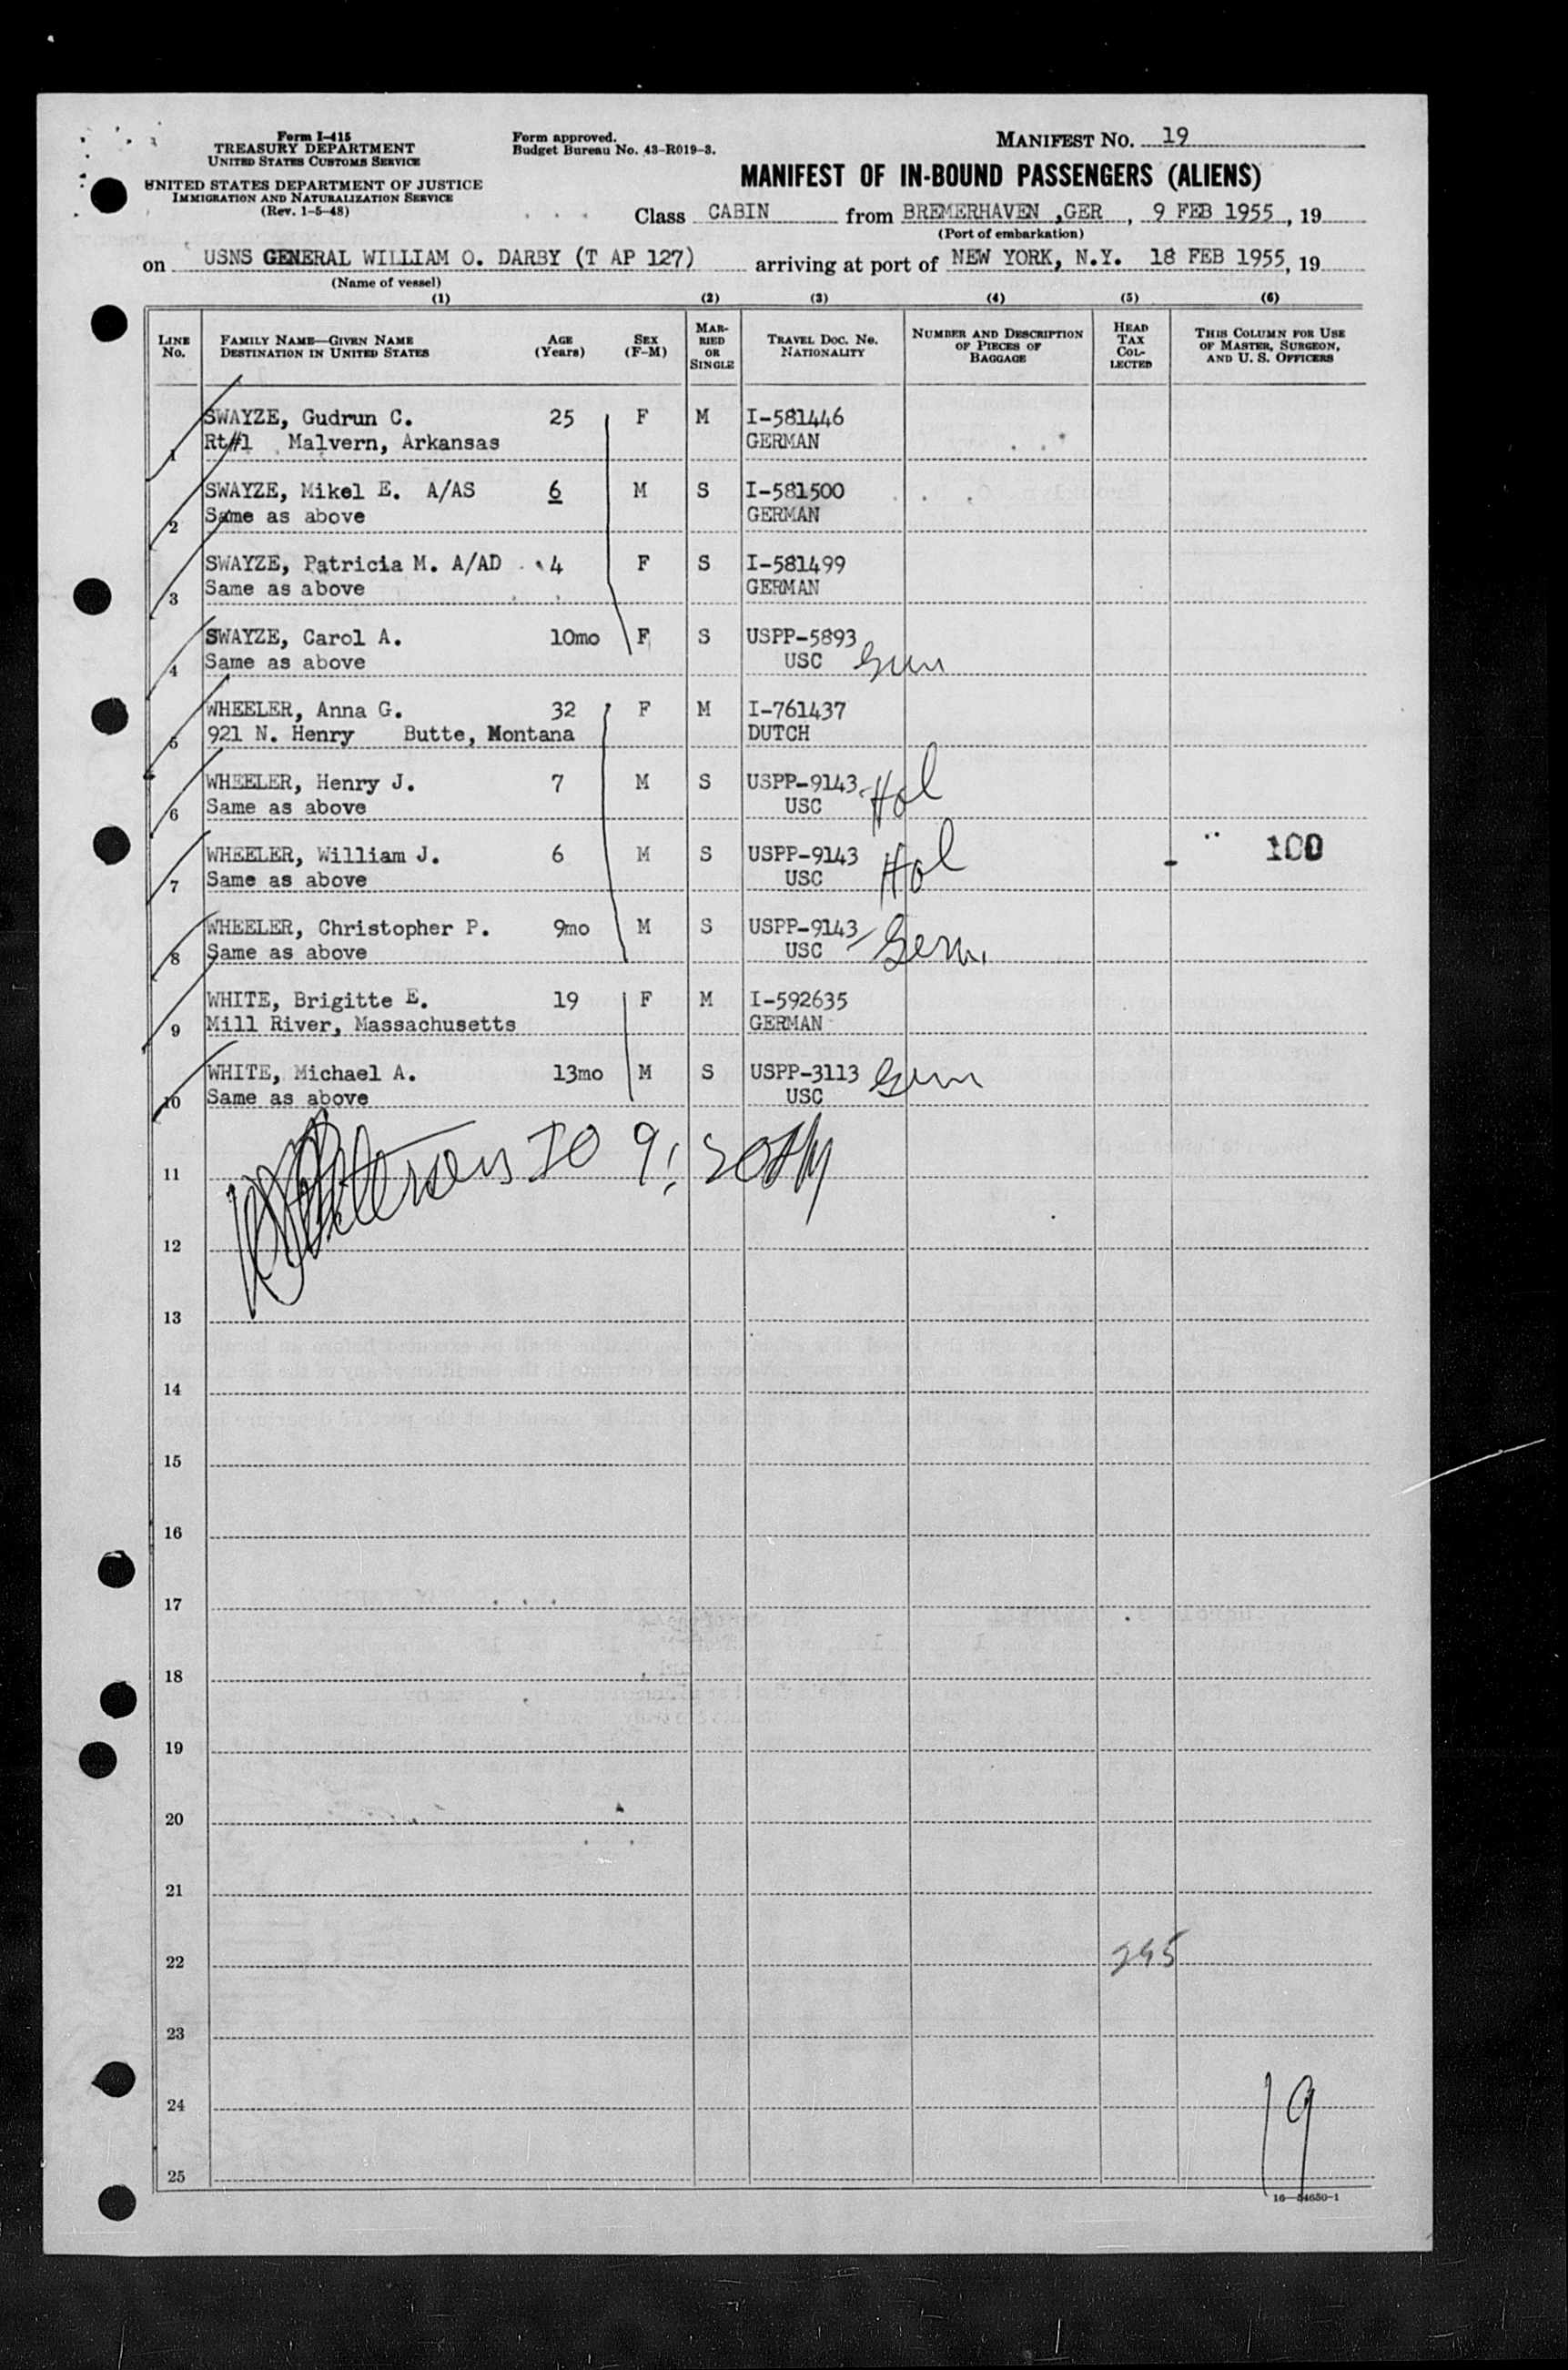 Form I-415
TREASURY DEPARTMENT
UNITED STATES CUSTOMS SERVICE
UNITED STATES DEPARTMENT OF JUSTICE
IMMIGRATION AND NATURALIZATION SERVICE
(Rev. 1-5-48)
Form approved.
Budget Bureau No. 43-R019-3.
MANIFEST NO. 19
MANIFEST OF IN-BOUND PASSENGERS (ALIENS)
Class CABIN from BREMERHAVEN ,GER , 9 FEB 1955 , 19
(Port of embarkation)
on USNS GENERAL WILLIAM O. DARBY (T AP 127) arriving at port of NEW YORK, N.Y. 18 FEB 1955, 19
(Name of vessel)
(1) (2) (3) (4) (5) (6)
LINE NO. FAMILY NAME—GIVEN NAME DESTINATION IN UNITED STATES AGE (Years) SEX (F-M) MARRIED OR SINGLE TRAVEL DOC. NO. NATIONALITY NUMBER AND DESCRIPTION OF PIECES OF BAGGAGE HEAD TAX COLLECTED THIS COLUMN FOR USE OF MASTER, SURGEON, AND U. S. OFFICERS
SWAYZE, Gudrun C. 25 F M I-581446
1 Rt#1 Malvern, Arkansas GERMAN
SWAYZE, Mikel E. A/AS 6 M S I-581500
2 Same as above GERMAN
SWAYZE, Patricia M. A/AD 4 F S I-581499
3 Same as above GERMAN
SWAYZE, Carol A. 10mo F S USPP-5893
4 Same as above USC Ger
WHEELER, Anna G. 32 F M I-761437
5 921 N. Henry Butte, Montana DUTCH
WHEELER, Henry J. 7 M S USPP-9143 Hol
6 Same as above USC
WHEELER, William J. 6 M S USPP-9143 Hol 100
7 Same as above USC
WHEELER, Christopher P. 9mo M S USPP-9143
8 Same as above USC Germ.
WHITE, Brigitte E. 19 F M I-592635
9 Mill River, Massachusetts GERMAN
WHITE, Michael A. 13mo M S USPP-3113 Germ
10 Same as above USC
11
12
13
14
15
16
17
18
19
20
21
22 245
23
24
19
25
16—54650-1